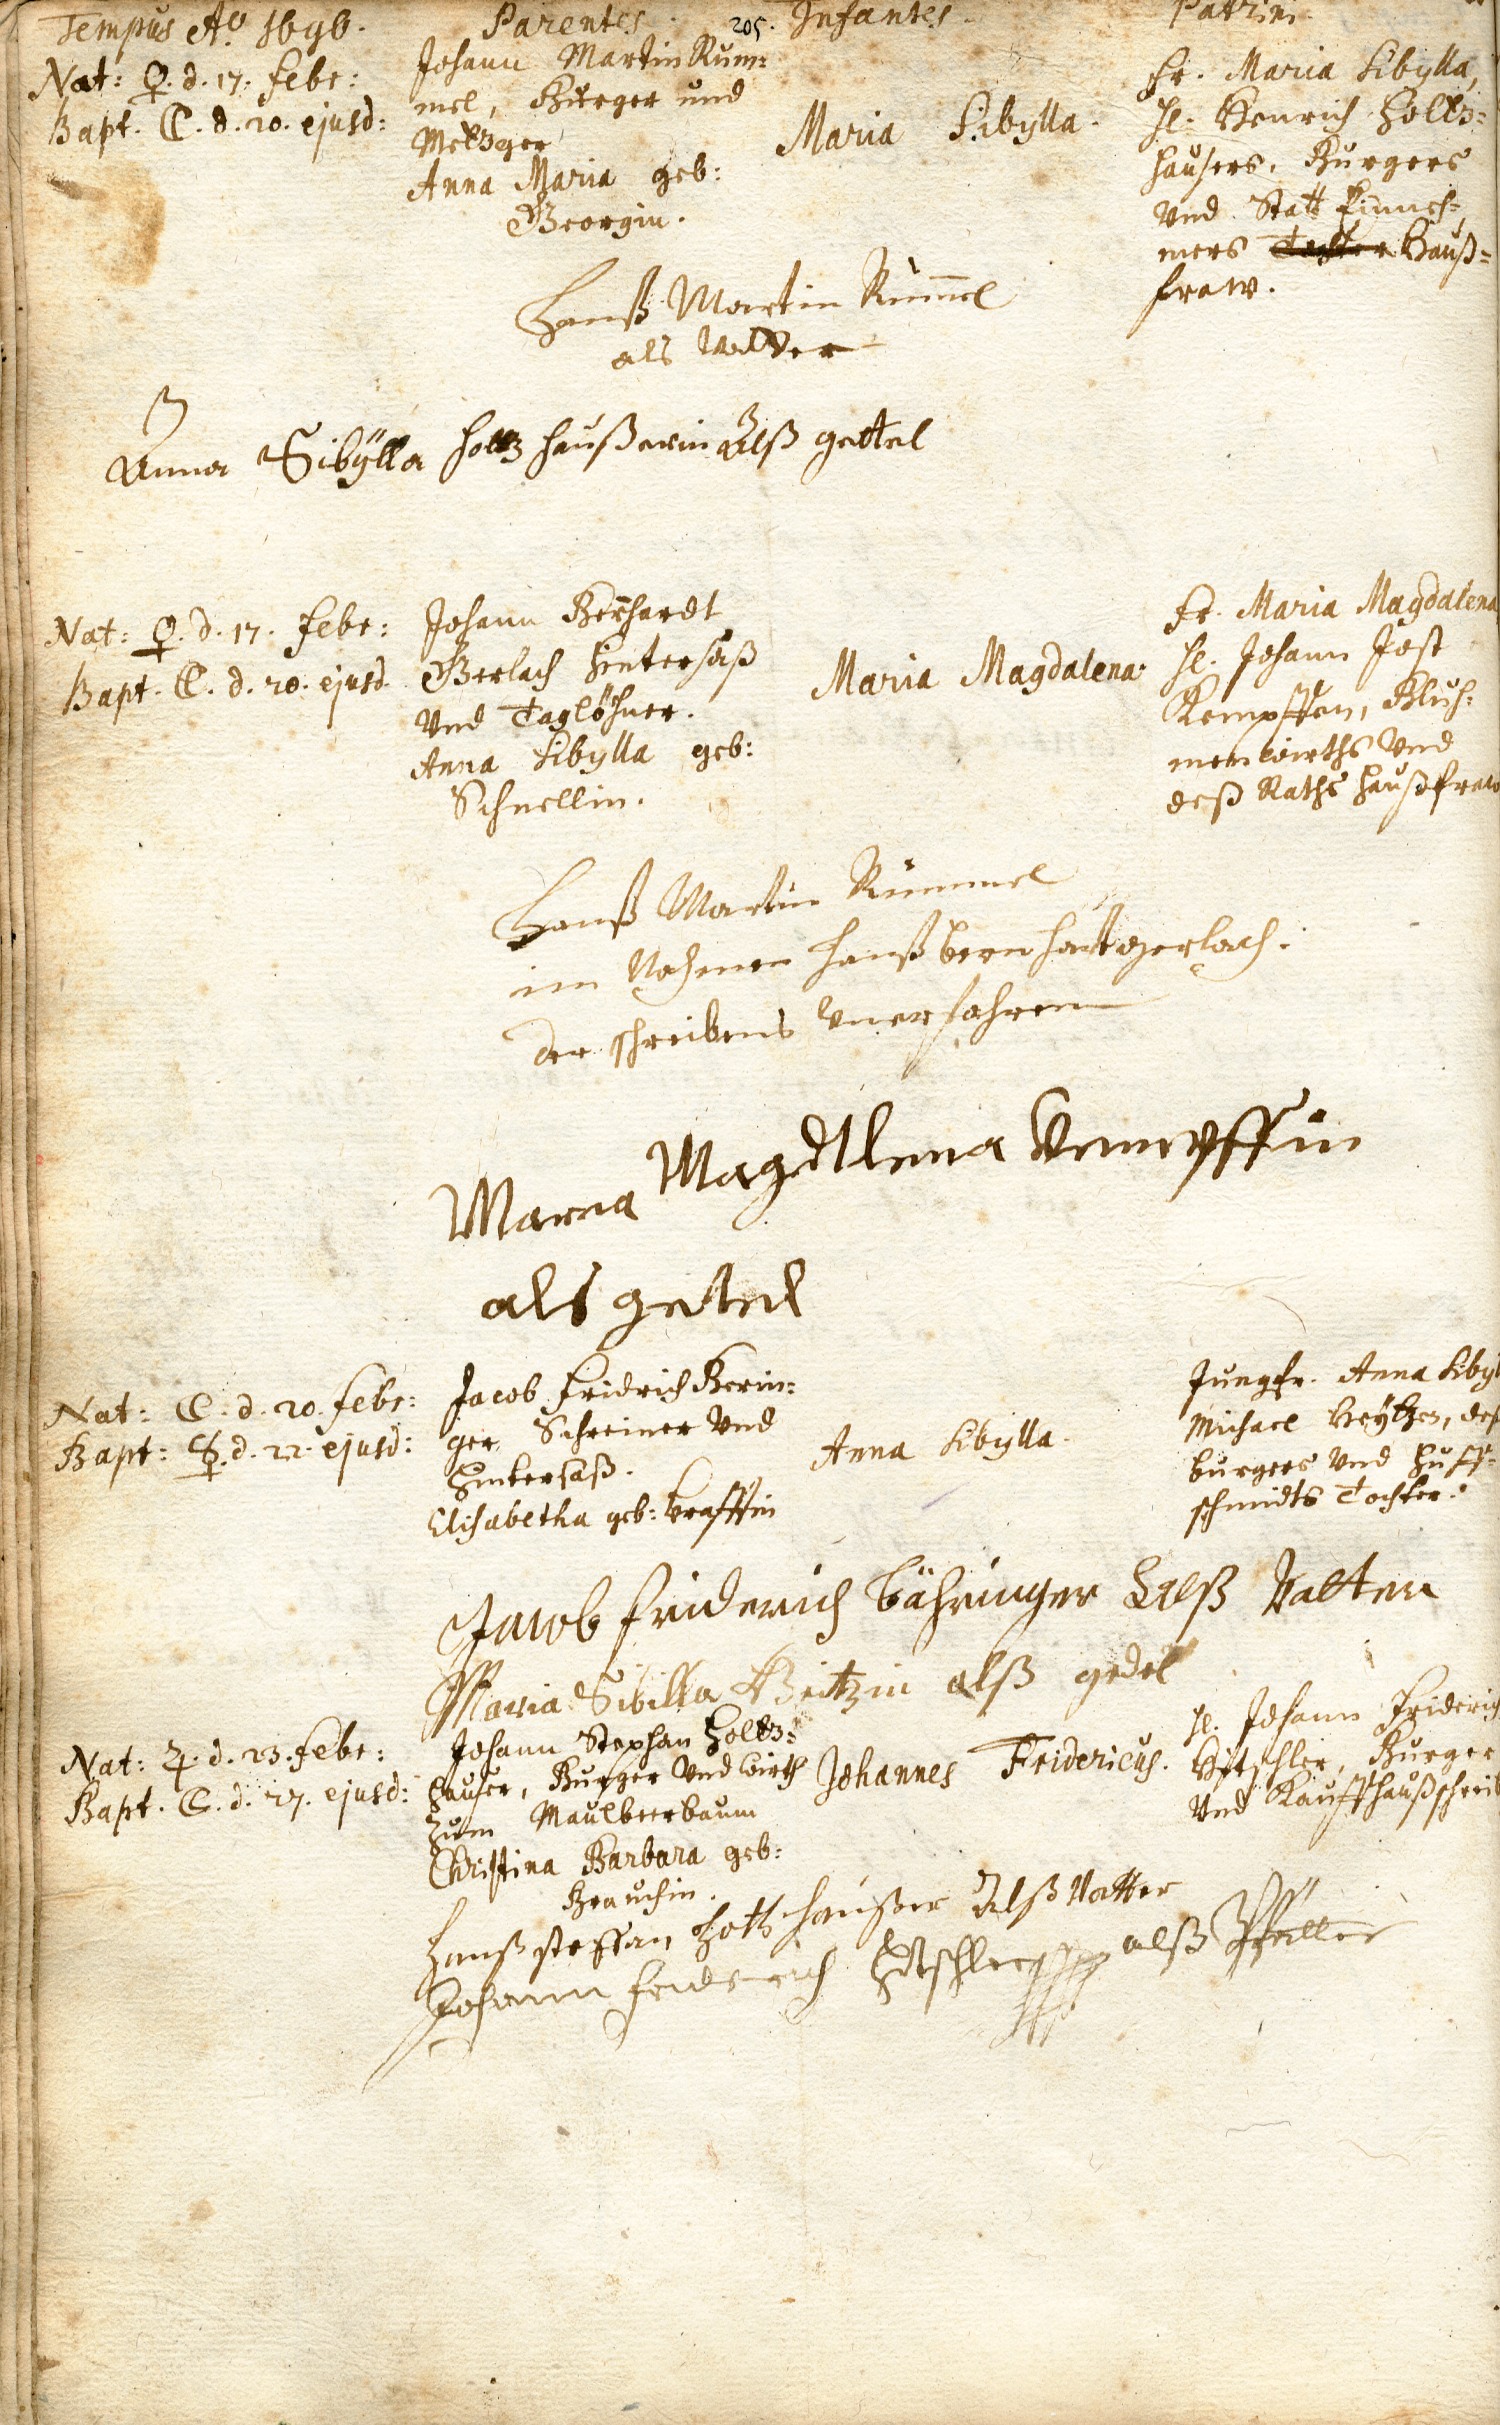 Tempus Aº 1696. Parentes. 205. Infantes. Patrini.
Nat: ♀. d. 17. febr:
Bapt. ☾. d. 20. ejusd:
Johann Martin Rum=
mel, Burger und
Metzger
Anna Maria geb:
Georgin.
Maria Sibylla.
Fr. Maria Sibylla,
H. Henrich Holtz=
hausers, Burgers
Vnd Statt Einneh=
mers Tochter Hauß=
fraw.
Hanß Martin Rum̄el
als Vatter
Anna Sibÿlla holtz haußerin Alß gettel
Nat: ♀. d. 17. febr:
Bapt. ☾. d. 20. ejusd
Johann Bernhardt
Gerlach Hintersäß
Vnd Taglöhner.
Anna Sibylla geb:
Schnellin.
Maria Magdalena.
Fr. Maria Magdalena
H. Johann Jost
Kempffen, Bluh=
menwirths Vnd
deß Raths Haußfraw
Hanß Martin Rummel
im Nahmen hanß bernhart gerlach.
der schreibens Vnerfahren
Maria Magdtlena Kempffin
als getel
Nat: ☾. d. 20. febr:
Bapt: ☿. d. 22. ejusd:
Jacob Fridrich Berin=
ger, Schreiner Vnd
Hintersaß.
Elisabetha geb: Krafftin
Anna Sibylla.
Jungfr. Anna Siby
Michael Beytzen, deß
burgers Vnd Huff=
schmidts Tochter.
Jacob friderich bähringer Alß Vatter
Maria Sibilla Beitzin alß gedel
Nat: ♃. d. 23. febr:
Bapt. ☾. d. 27. ejusd:
Johann Stephan Holtz=
hauser, Burger Vnd wirth
Zum Maulbeerbaum
Christina Barbara geb:
Brauchin.
Johannes Fridericus.
H. Johann Friderich
Hitschler, Burger
Vnd Kauffhaußschreib
Hanß steffan Holtz haußer Alß Vatter
Johann friderich Hitschler alß Pfetter